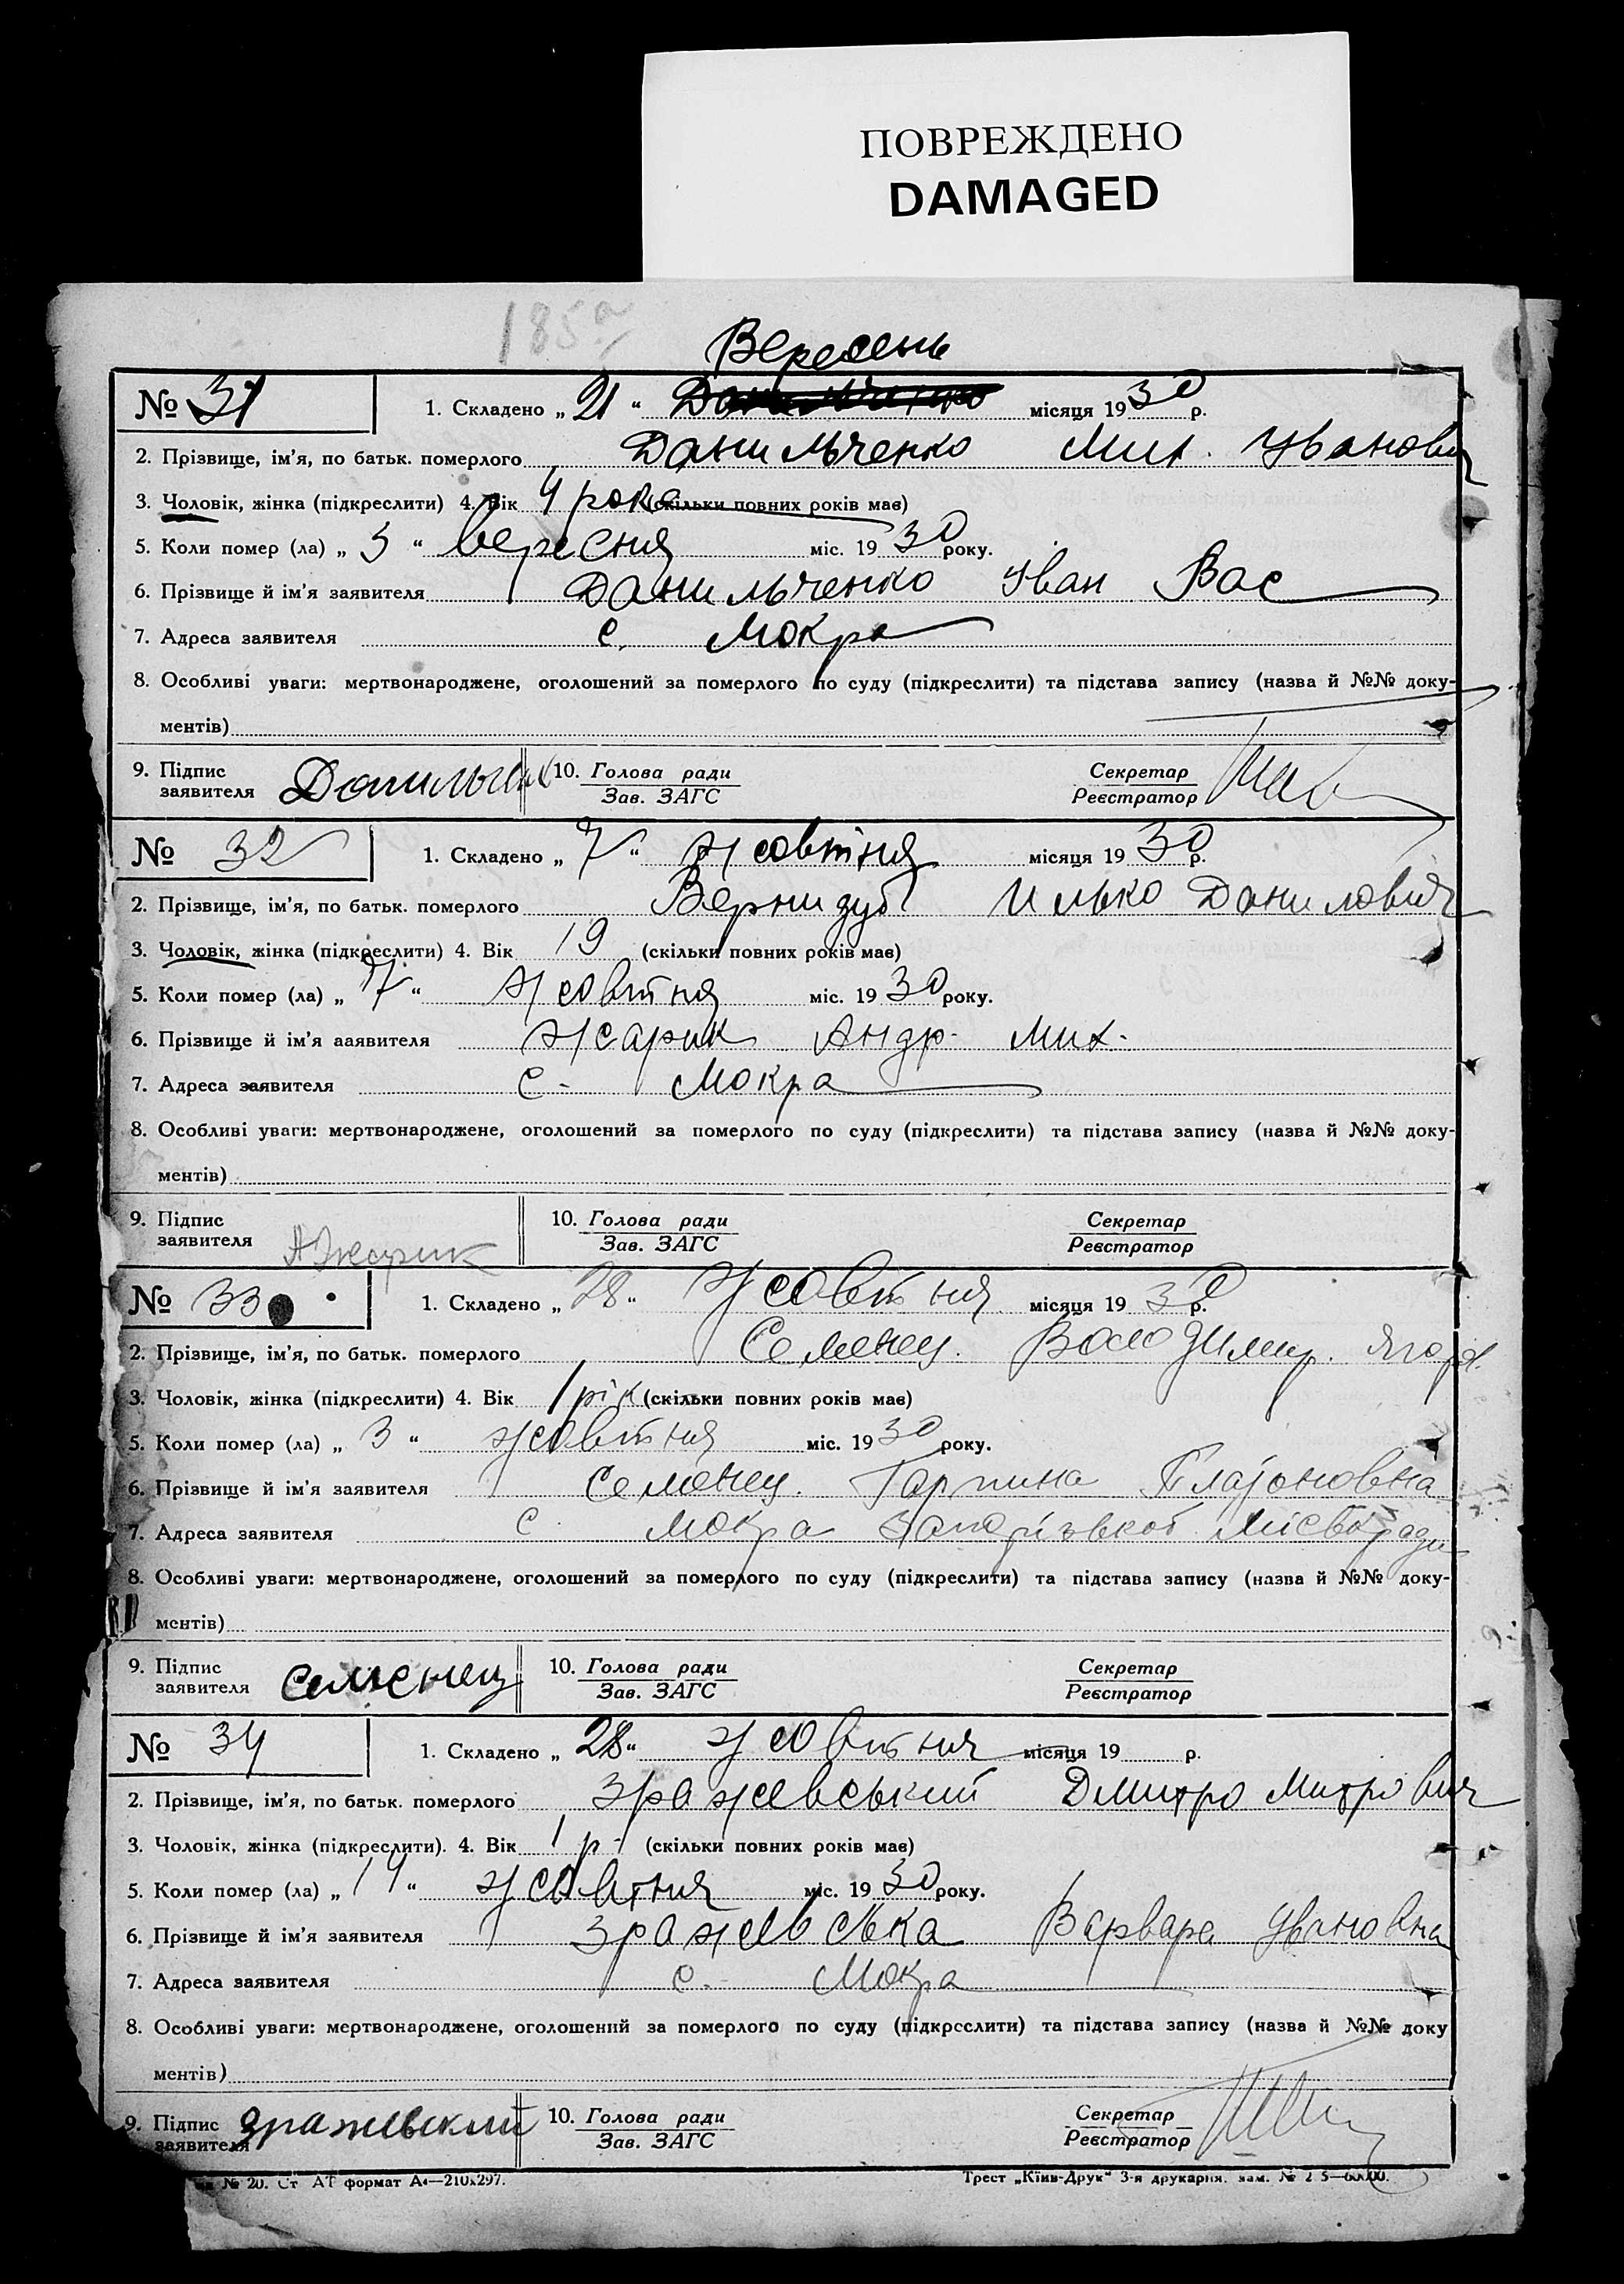 ПОВРЕЖДЕНО
DAMAGED
185а
Вересень
№ 31 1. Складено „ 21 “ місяця 1930 р.
2. Прізвище, ім’я, по батьк. померлого Данильченко Мих. Іванович
3. Чоловік, жінка (підкреслити) 4. Вік 4 рок (скільки повних років має)
5. Коли помер (ла) „ 3 “ вересня міс. 1930 року.
6. Прізвище й ім’я заявителя Данильченко Іван Вас
7. Адреса заявителя с. Мокра
8. Особливі уваги: мертвонароджене, оголошений за померлого по суду (підкреслити) та підстава запису (назва й №№ доку-
ментів)
9. Підпис заявителя 10. Голова ради Секретар
Зав. ЗАГС Реєстратор
№ 32 1. Складено „ 7 “ жовтня місяця 1930 р.
2. Прізвище, ім’я, по батьк. померлого Вернидуб Илько Данилович
3. Чоловік, жінка (підкреслити) 4. Вік 19 (скільки повних років має)
5. Коли помер (ла) „ 7 “ жовтня міс. 1930 року.
6. Прізвище й ім’я ааявителя Жарик Андр. Мих.
7. Адреса заявителя с. Мокра
8. Особливі уваги: мертвонароджене, оголошений за померлого по суду (підкреслити) та підстава запису (назва й №№ доку-
ментів)
9. Підпис заявителя А Жарик 10. Голова ради Секретар
Зав. ЗАГС Реєстратор
№ 33 1. Складено „ 28 “ жовтня місяця 1930 р.
2. Прізвище, ім’я, по батьк. померлого Семенец. Володимир.
3. Чоловік, жінка (підкреслити) 4. Вік 1 рік (скільки повних років має)
5. Коли помер (ла) „ 3 “ жовтня міс. 1930 року.
6. Прізвище й ім’я заявителя Семенец. Гарпина Платоновна
7. Адреса заявителя с. Мокра Запорізької Міськради
8. Особливі уваги: мертвонароджене, оголошений за померлого по суду (підкреслити) та підстава запису (назва й №№ доку-
ментів)
9. Підпис заявителя Семенец 10. Голова ради Секретар
Зав. ЗАГС Реєстратор
№ 34 1. Складено „ 28 “ жовтня місяця 19 р.
2. Прізвище, ім’я, по батьк. померлого Зражевський Дмитро Митрович
3. Чоловік, жінка (підкреслити). 4. Вік 1 р- (скільки повних років має)
5. Коли помер (ла) „ 14 “ жовтня міс. 1930 року.
6. Прізвище й ім’я заявителя Зражевська Варвара Івановна
7. Адреса заявителя с. Мокра
8. Особливі уваги: мертвонароджене, оголошений за померлого по суду (підкреслити) та підстава запису (назва й №№ доку
ментів)
9. Підпис заявителя Зражевский 10. Голова ради Секретар
Зав. ЗАГС Реєстратор
№ 20. Ст АТ формат А4—210x297. Трест „Київ-Друк“ 3-я друкарня. зам. №